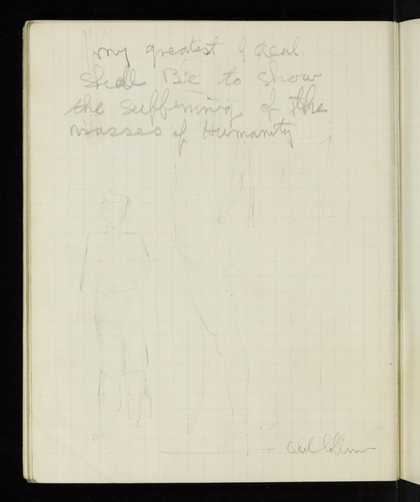 my greatest goal
shall Be to show
the suffering of the
masses of Humanity